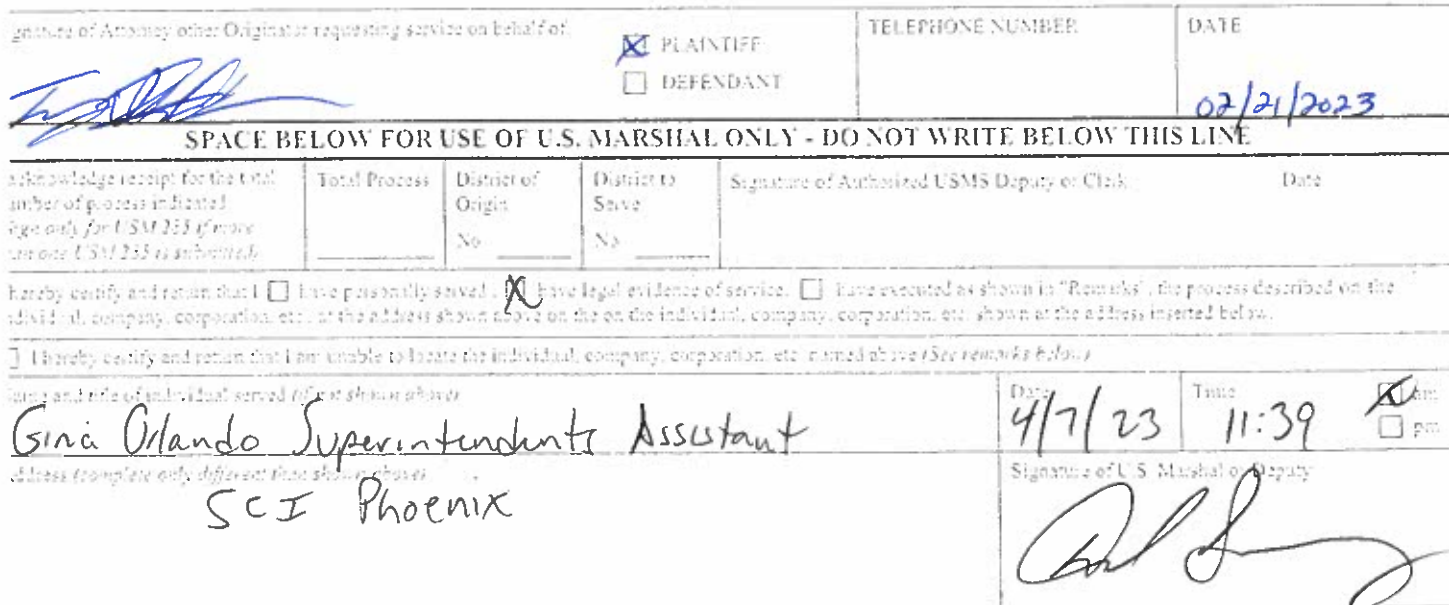 gnature of Attorney other Originator requesting service on behalf of:
PLAINTIFF
DEFENDANT
TELEPHONE NUMBER
DATE
02/21/2023
SPACE BELOW FOR USE OF U.S. MARSHAL ONLY - DO NOT WRITE BELOW THIS LINE
acknowledge receipt for the total
umber of process indicated
ign only for USM 285 if more
than one USM 285 is submitted)
Total Process
District of
Origin
No
District to
Serve
No
Signature of Authorized USMS Deputy or Clerk
Date
hereby certify and return that I have personally served, have legal evidence of service, have executed as shown in "Remarks", the process described on the
individual, company, corporation, etc., at the address shown above on the on the individual, company, corporation, etc. shown at the address inserted below.
I hereby certify and return that I am unable to locate the individual, company, corporation, etc. named above (See remarks below)
ame and title of individual served (if not shown above)
Gina Orlando Superintendents Assistant
Date
4/7/23
Time
11:39
am
pm
ddress (complete only different than shown above)
SCI Phoenix
Signature of U.S. Marshal or Deputy